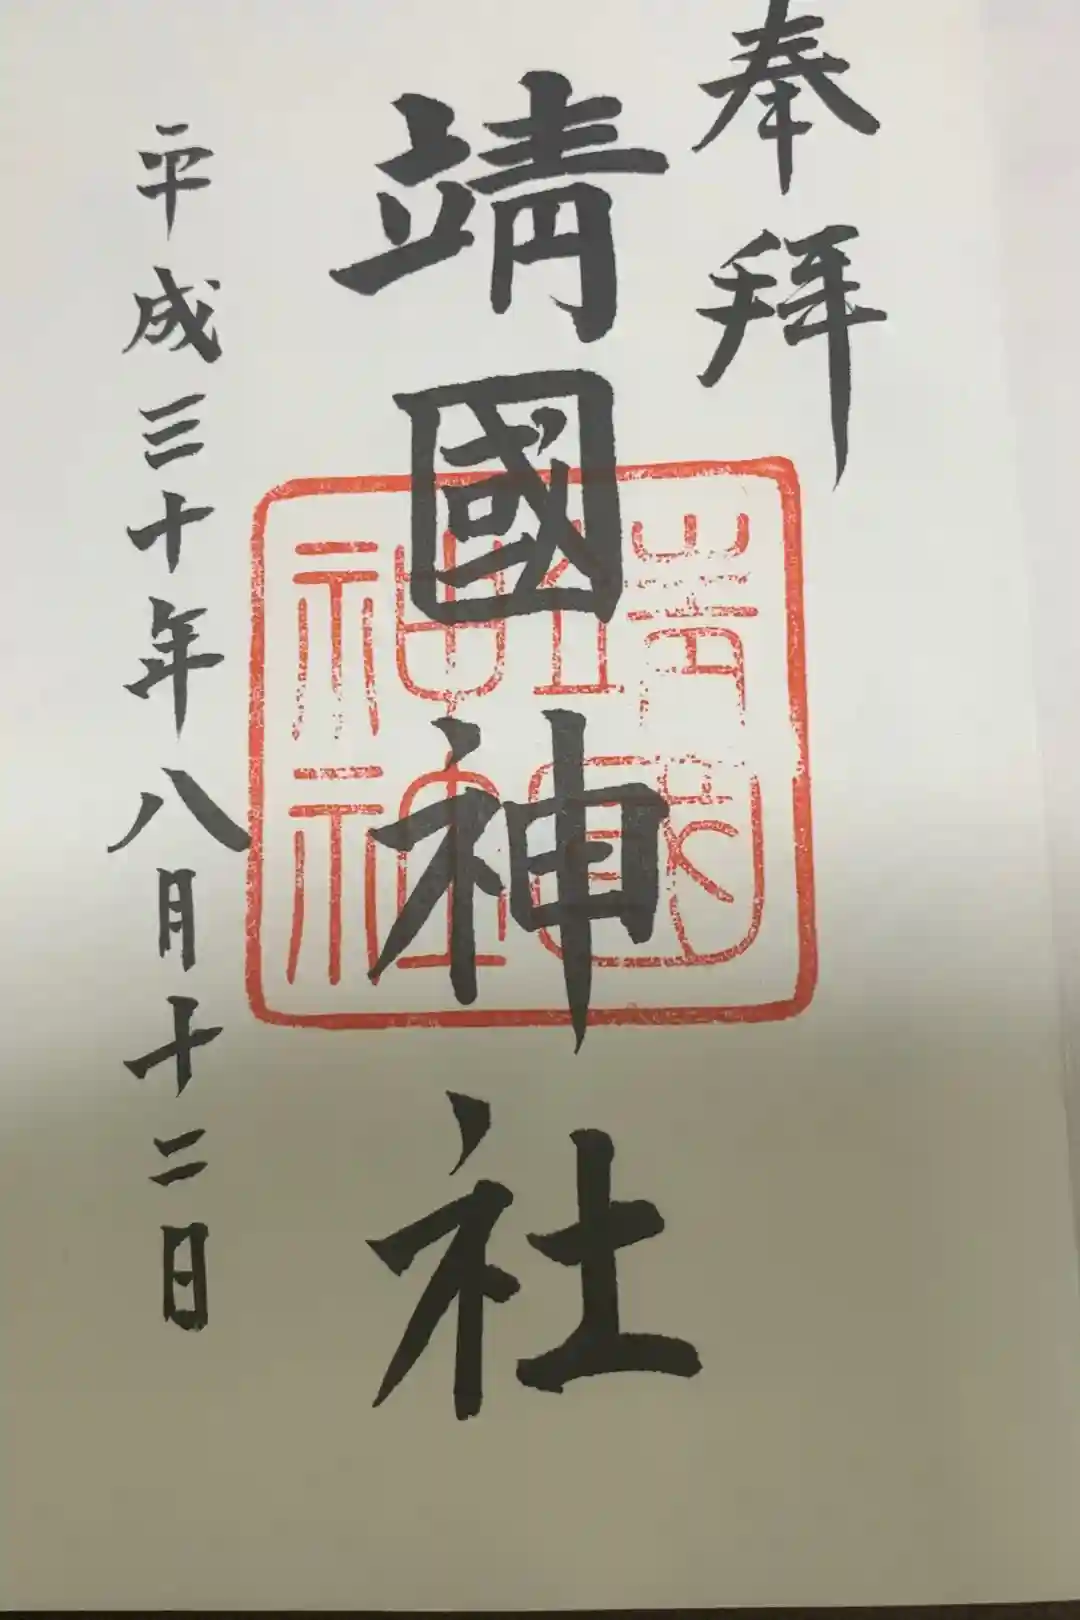 奉拜
靖國神社
靖國神社
平成三十年八月十二日